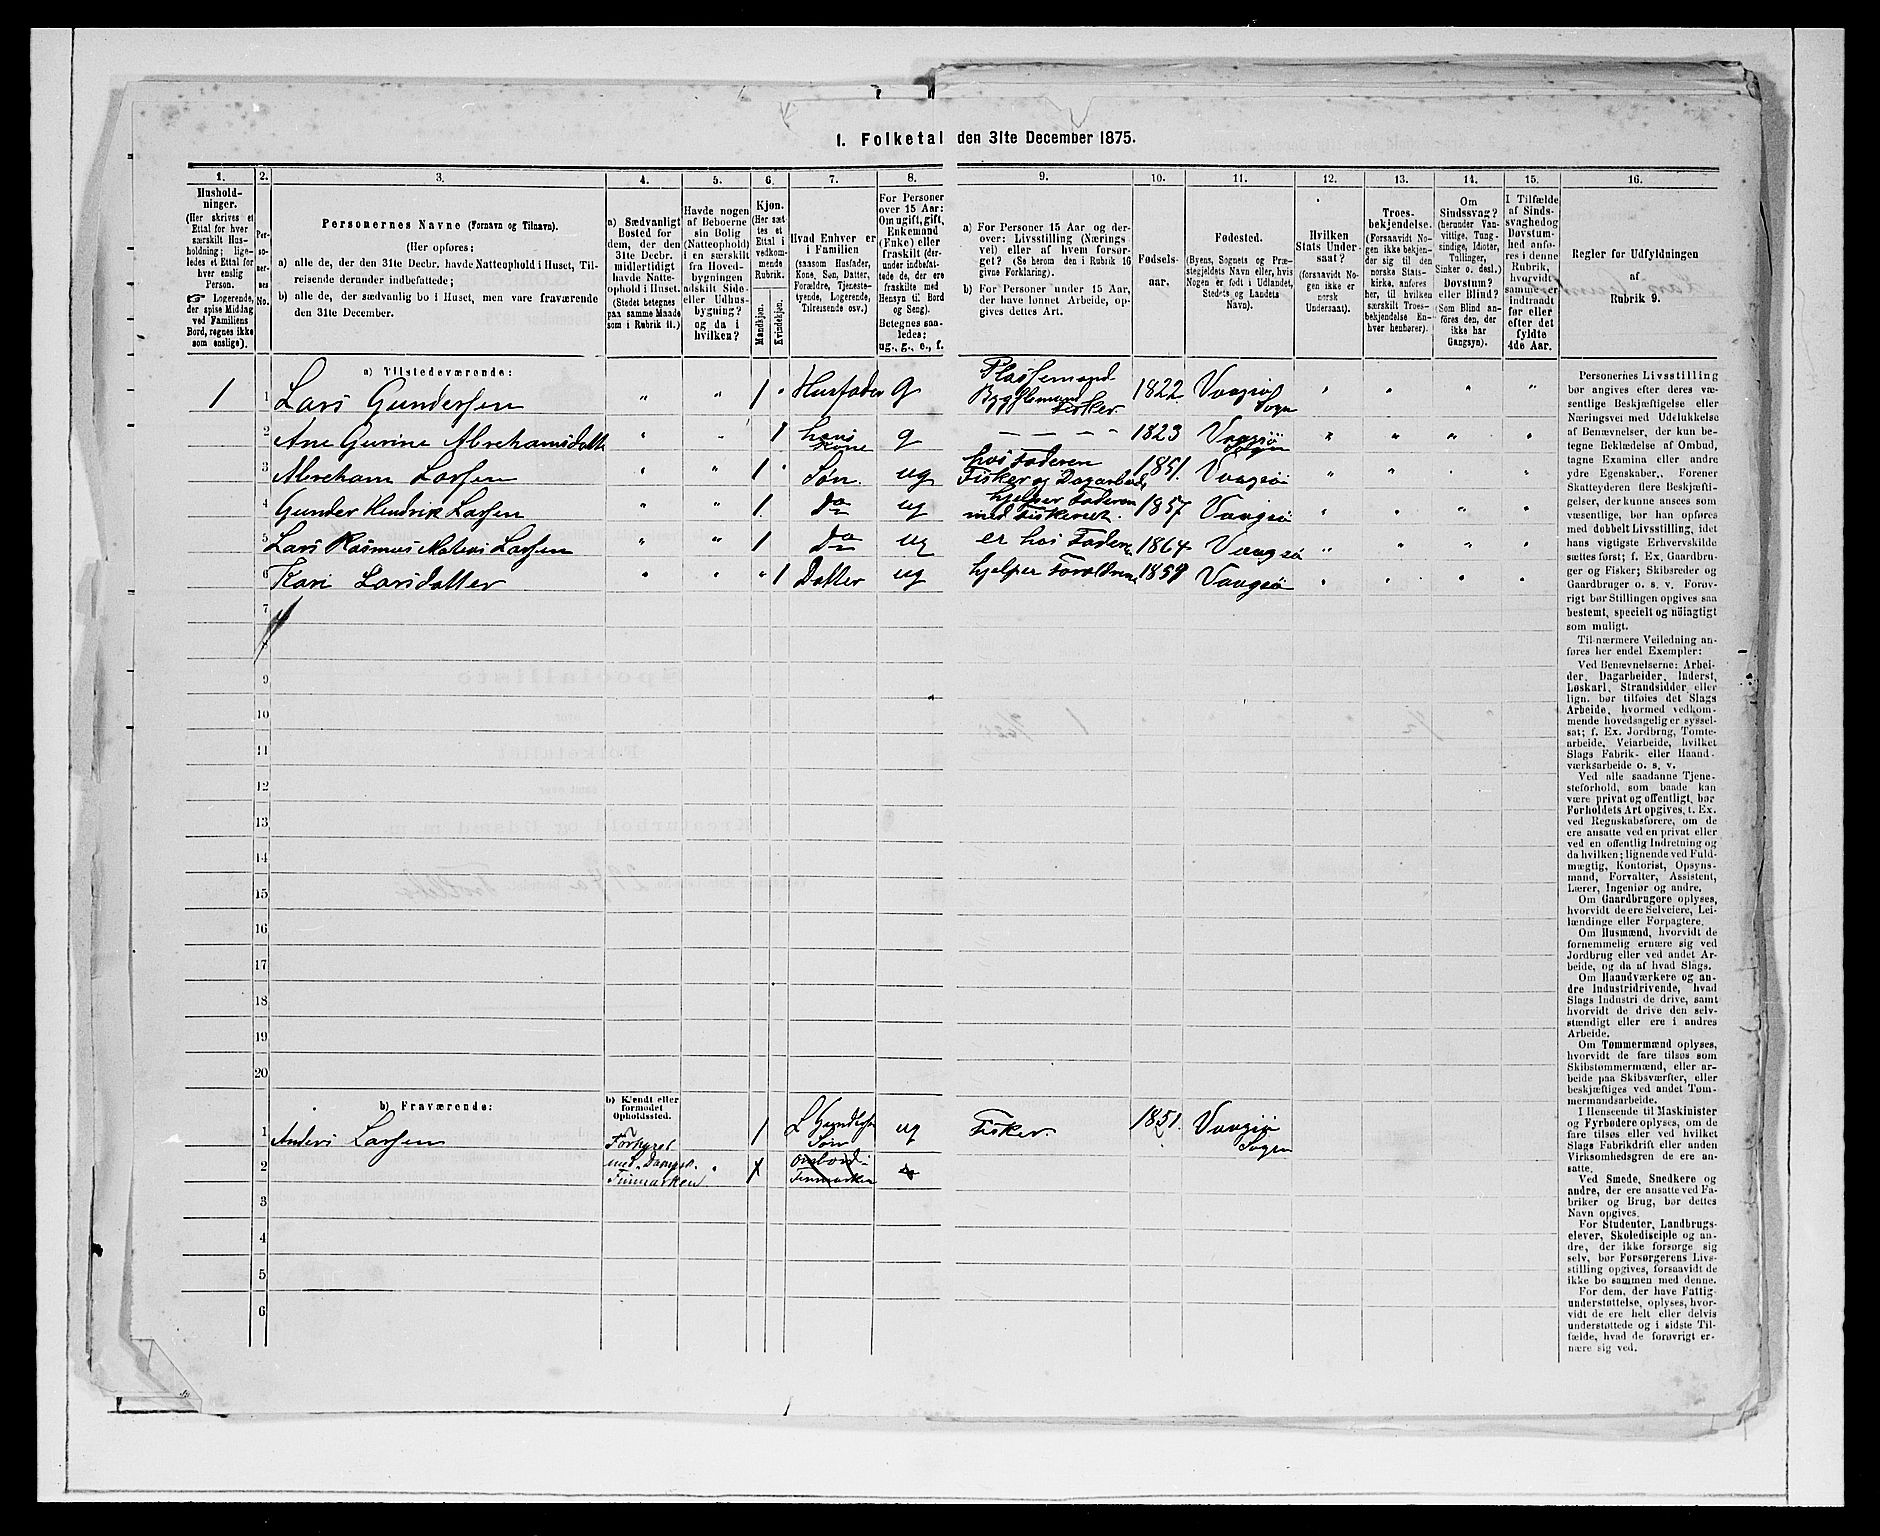 1. Folketal den 31te December 1875.
1.
2.
3.
4.
5.
6.
7.
8.
9.
10.
11.
12.
13.
14.
15.
16.
Hushold-
ninger.
(Her skrives et
Ettal for hver
særskilt Hus-
holdning; lige-
ledes et Ettal for
hver enslig
Person.
☞ Logerende,
der spise Middag
ved Familiens
Bord, regnes ikke
som enslige).
Per-
so-
ner-
nes
No.
Personernes Navne (Fornavn og Tilnavn).
(Her opføres:
a) alle de, der den 31te Decbr. havde Natteophold i Huset, Til-
reisende derunder indbefattede;
b) alle de, der sædvanlig bo i Huset, men vare fraværende
den 31te December.
a) Sædvanligt
Bosted for
dem, der den
31te Decbr.
midlertidigt
havde Natte-
ophold i Huset.
(Stedet betegnes
paa samme Maade
som i Rubrik 11.)
Havde nogen
af Beboerne
sin Bolig
(Natteophold)
i en særskilt
fra Hoved-
bygningen
adskilt Side-
eller Udhus-
bygning?
og da i
hvilken?
Kjøn.
(Her sæt-
tes et
Ettal i
vedkom-
mende
Rubrik.
Mandkjøn.
Kvindekjøn.
Hvad Enhver er
i Familien
(saasom Husfader,
Kone, Søn, Datter,
Forældre, Tjeneste-
tyende, Logerende,
Tilreisende osv.)
For Personer
over 15 Aar:
Om ugift, gift,
Enkemand
(Enke) eller
fraskilt (der-
under indbefat-
tede de, der ere
fraskilte med
Hensyn til Bord
og Seng).
Betegnes saa-
ledes:
ug., g., e., f.
a) For Personer 15 Aar og der-
over: Livsstilling (Nærings-
vei) eller af hvem forsør-
get? (Se herom den i Rubrik 16
givne Forklaring).
b) For Personer under 15 Aar,
der have lønnet Arbeide, op-
gives dettes Art.
Fødsels-
aar.
Fødested.
(Byens, Sognets og Præ-
stegjeldets Navn eller, hvis
Nogen er født i Udlandet,
Stedets og Landets
Navn).
Hvilken
Stats Under-
saat?
(forsaavidt No-
gen ikke er
norsk
Undersaat).
Troes-
bekjendelse.
(Forsaavidt No-
gen ikke bekjen-
der sig til den
norske Stats-
kirke, anføres
her, til hvilken
særskilt Troes-
bekjendelse En-
hver henhører).
Om
Sindssvag?
(herunder Van-
vittige, Tung-
sindige, Idioter,
Tullinger,
Sinker o. desl.)
Døvstum?
eller Blind?
(Som Blind an-
føres den, der
ikke har
Gangsyn).
I Tilfælde
af Sinds-
svaghed og
Døvstum-
hed anfø-
res i denne
Rubrik,
hvorvidt
samme er
indtraadt
før eller
efter det
fyldte
4de Aar.
Regler for Udfyldningen
af
Rubrik 9.
a) Tilstedeværende:
1 1 Lars Gundersen " " 1 " Husfader g Plassemand Bygselmand Fisker 1822 Vaagsø Sogn " " " "
2 Ane Gurine Abrehamsdatte " " 1 hans Kone g — — — 1823 Vaagsø Sogn " " " "
3 Abreham Larsen " " 1 " Søn. ug hos Faderen Fisker og Dagarbeid 1851. Vaagsø " " " "
4 Gunder Hendrik Larsen " " 1 do ug hjelper Faderen med Fiskeriet. 1857 Vaagsø " " " "
5 Lars Rasmus Mateus Larsen " " 1 do ug er hos Faderen 1864 Vaagsø " " " "
6 Kari Larsdatter " " " 1 Datter ug hjelper Foreldrene Vaagsø " " " "
7
8
9
10
11
12
13
14
15
16
17
18
19
20
b) Fraværende:
b) Kjendt eller
formodet
Opholdssted.
1 Anders Larsen Forhyret med Dampsk. Finmarken 1 L Gundersen Søn ug Fisker. 1851. Vaagsø Sogn
2 " ombord i Finmarken
3
4
5
6
Personernes Livsstilling
bør angives efter deres væ-
sentlige Beskjæftigelse eller
Næringsvei med Udelukkelse
af Benævnelser, der kun be-
tegne Beklædelse af Ombud,
tagne Examina eller andre
ydre Egenskaber. Forener
Skatteyderen flere Beskjæfti-
gelser, der kunne ansees som
væsentlige, bør han opføres
med dobbelt Livsstilling, idet
hans vigtigste Erhvervskilde
sættes først; f. Ex. Gaardbru-
ger og Fisker; Skibsreder og
Gaardbruger o. s. v. Forøv-
rigt bør Stillingen opgives saa
bestemt, specielt og nöiagtigt
som muligt.
Til nærmere Veiledning an-
føres her endel Exempler:
Ved Benævnelserne: Arbei-
der, Dagarbeider, Inderst,
Løskarl, Strandsidder eller
lign. bør tilføies det Slags
Arbeide, hvormed vedkom-
mende hovedsagelig er syssel-
sat; f. Ex. Jordbrug, Tomte-
arbeide, Veiarbeide, hvilket
Slags Fabrik- eller Haand-
værksarbeide o. s. v.
Ved alle saadanne Tjene-
steforhold, som baade kan
være privat og offentligt, bør
Forholdets Art opgives, t. Ex.
ved Regnskabsførere, om de
ere ansatte ved en privat eller
ved en offentlig Indretning og
da hvilken; lignende ved Fuld-
mægtig, Kontorist, Opsyns-
mand, Forvalter, Assistent,
Lærer, Ingeniør og andre.
Om Gaardbrugere oplyses,
hvorvidt de ere Selveiere, Lei-
lændinge eller Forpagtere.
Om Husmænd, hvorvidt de
fornemmelig ernære sig ved
Jordbrug eller ved andet Ar-
beide, og da af hvad Slags.
Om Haandværkere og an-
dre Industridrivende, hvad
Slags Industri de drive, samt
hvorvidt de drive den selv-
stændigt eller ere i andres
Arbeide.
Om Tømmermænd oplyses,
hvorvidt de fare tilsøs som
Skibstømmermænd, eller ar-
beide paa Skibsværfter, eller
beskjæftiges ved andet Tøm-
mermandsarbeide.
I Henseende til Maskinister
og Fyrbødere oplyses, om de
fare tilsøs eller ved hvilket
Slags Fabrikdrift eller anden
Virksomhedsgren de ere an-
satte.
Ved Smede, Snedkere og
andre, der ere ansatte ved Fa-
briker og Brug, bør dettes
Navn opgives.
For Studenter, Landbrugs-
elever, Skoledisciple og an-
dre, der ikke forsørge sig
selv, bør Forsørgerens Livs-
stilling opgives, forsaavidt de
ikke bo sammen med denne.
For dem, der have Fattig-
understøttelse, oplyses, hvor-
vidt de ere helt eller delvis
understøttede og i sidste Til-
fælde, hvad de forøvrigt er-
nære sig ved.